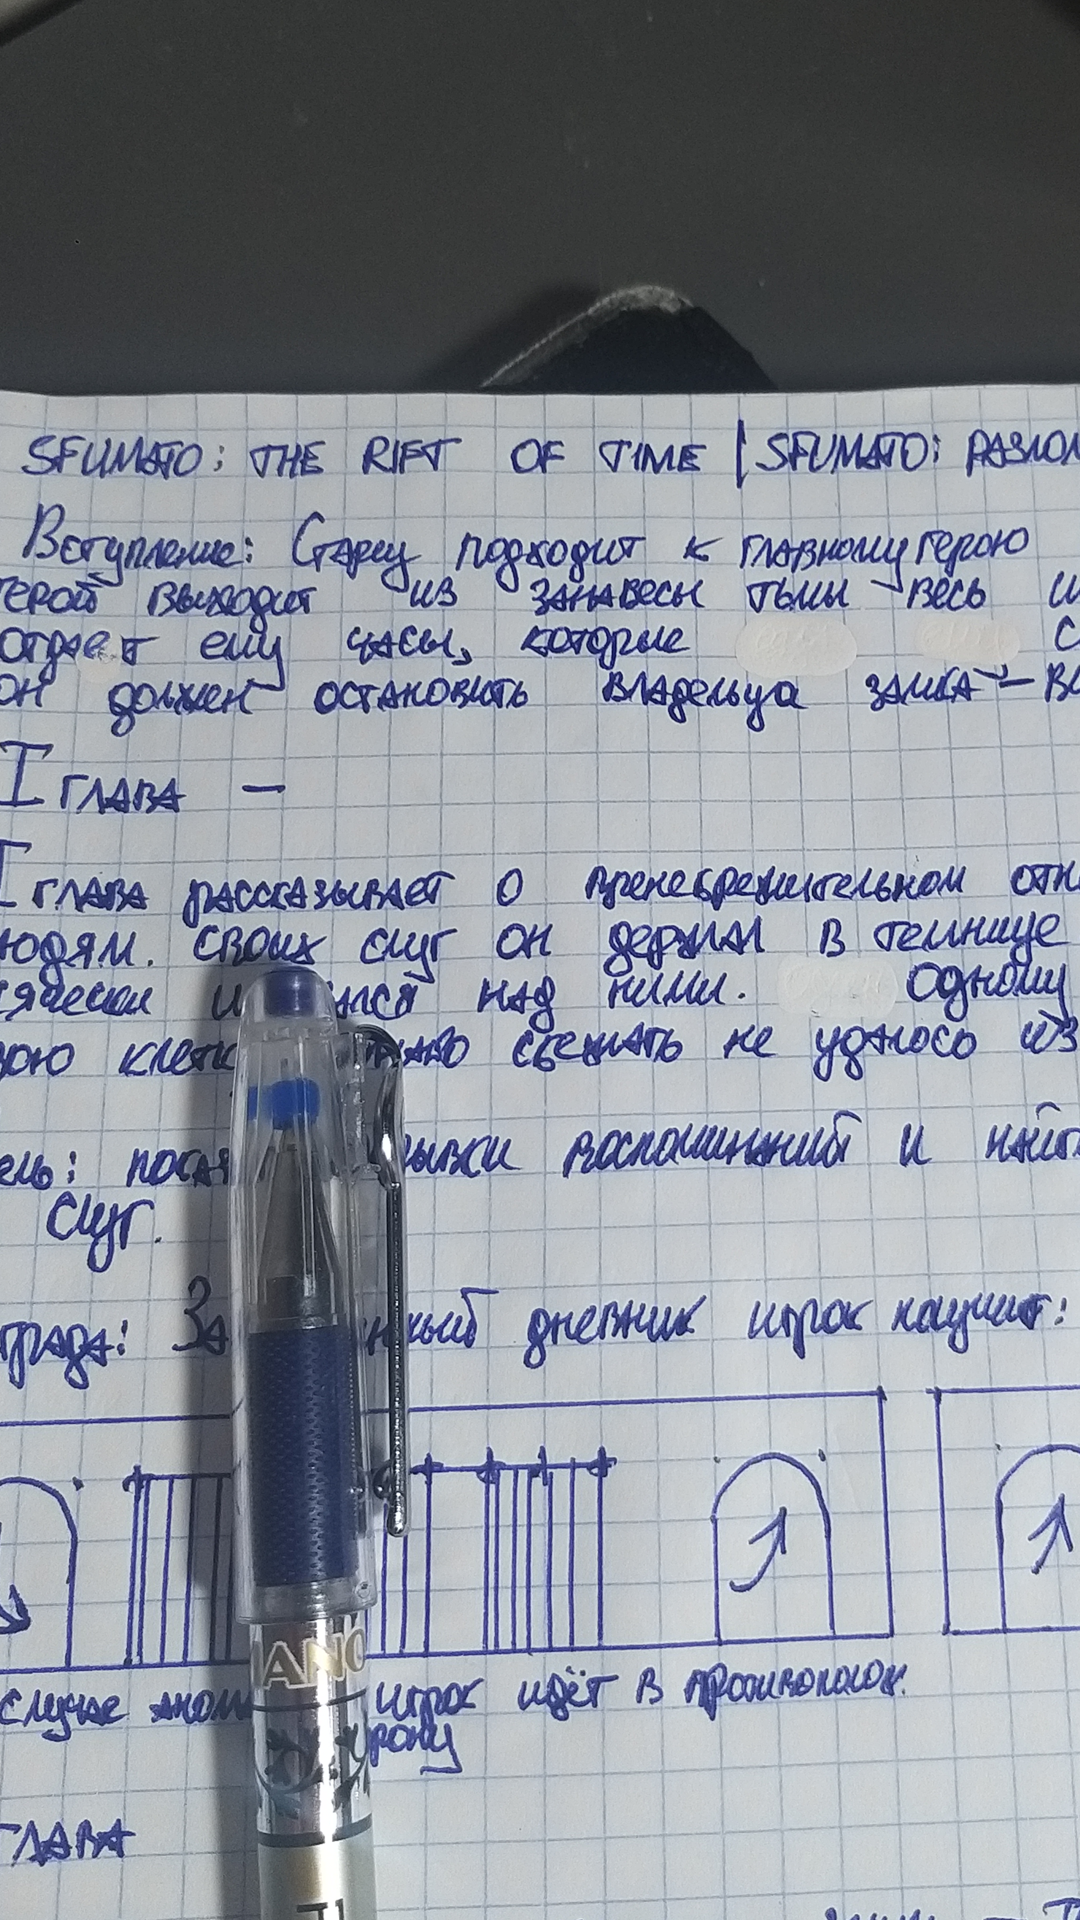 SFUMATO: THE RIFT OF TIME | SFUMATO: РАЗЛОМ
Вступление: Старец подходит к главному герою
герой выходит из занавесы тьмы весь
отдает ему часы, которые
он должен остановить владельца замка –
I глава –
I глава рассказывает о пренебрежительном отн
людям. Своих слуг он держал в темнице
над ними. одному
клетк сбежать не удалось из
ель: воспоминаний и найт
слуг.
града: За нный дневник игрок получит:
случае аном игрок идёт в противополож.
рону
глава
IANO